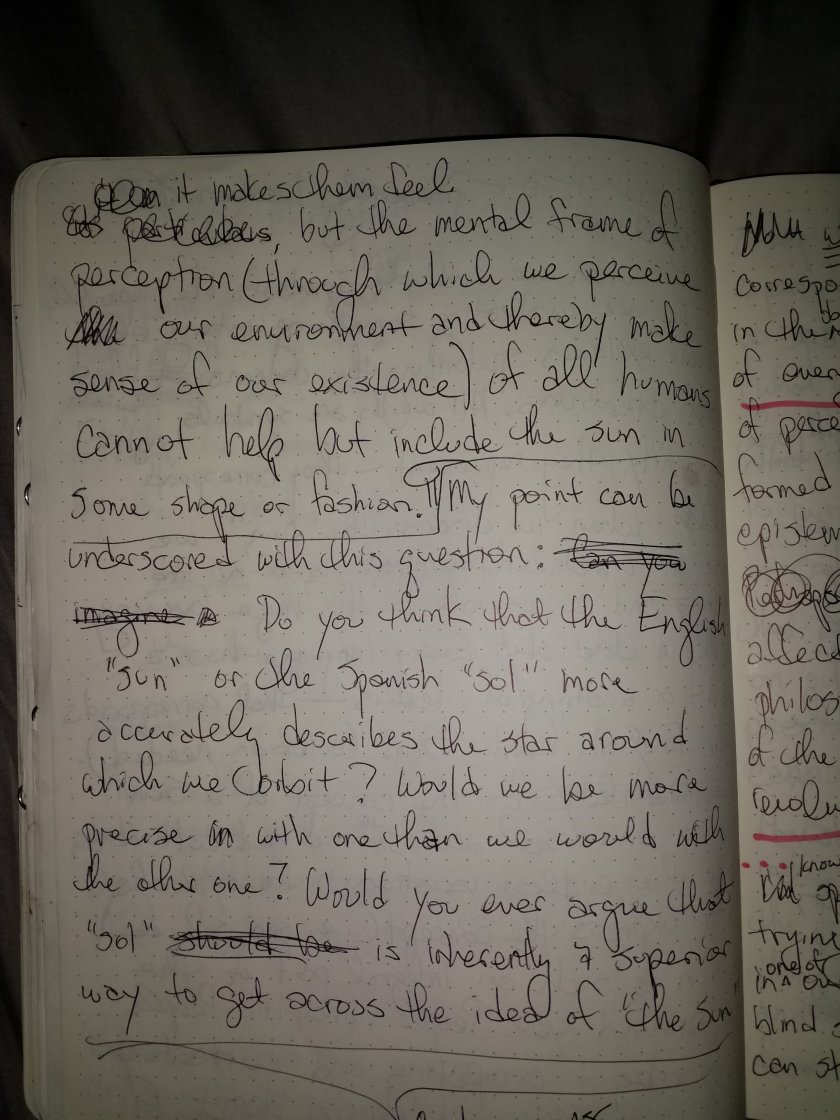 it makes them feel
but the mental frame of
perception (through which we perceive
our environment and thereby make
sense of our existence) of all humans
cannot help but include the sun in
some shape or fashion. ¶ My point can be
underscored with this question: Can you
imagine Do you think that the English
"sun" or the Spanish "sol" more
accurately describes the star around
which we orbit? Would we be more
precise in with one than we would with
the other one? Would you ever argue that
"sol" should be is inherently a superior
way to get across the idea of "the sun"
correspo
in the
of over
of perce
formed
epistem
affect
philos
of the
revolu
know
trying
one of
in
blind
can st